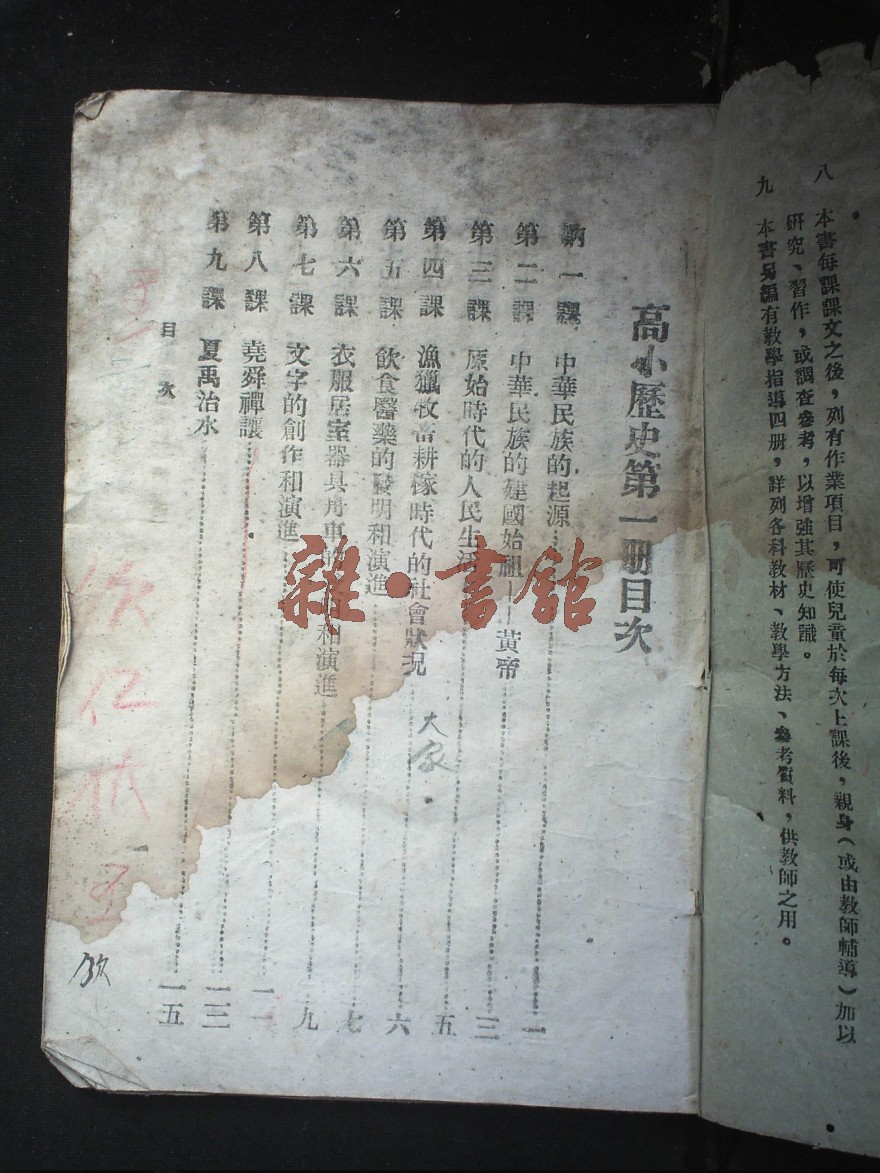 八　本書每課課文之後，列有作業項目，可使兒童於每次上課後，親身（或由教師輔導）加以
研究、習作，或調查參考，以增強其歷史知識。
九　本書另編有教學指導四册，詳列各科教材、教學方法、參考資料，供教師之用。
高小歷史第一册目次
第一課　中華民族的起源　一
第二課　中華民族的建國始祖——黃帝　三
第三課　原始時代的人民生活　五
第四課　漁獵牧畜耕稼時代的社會狀況　六
第五課　飲食醫藥的發明和演進　七
第六課　衣服居室器具舟車的 和演進　九
第七課　文字的創作和演進　一一
第八課　堯舜禪讓　一三
第九課　夏禹治水　一五
目　次
大
雜·書館